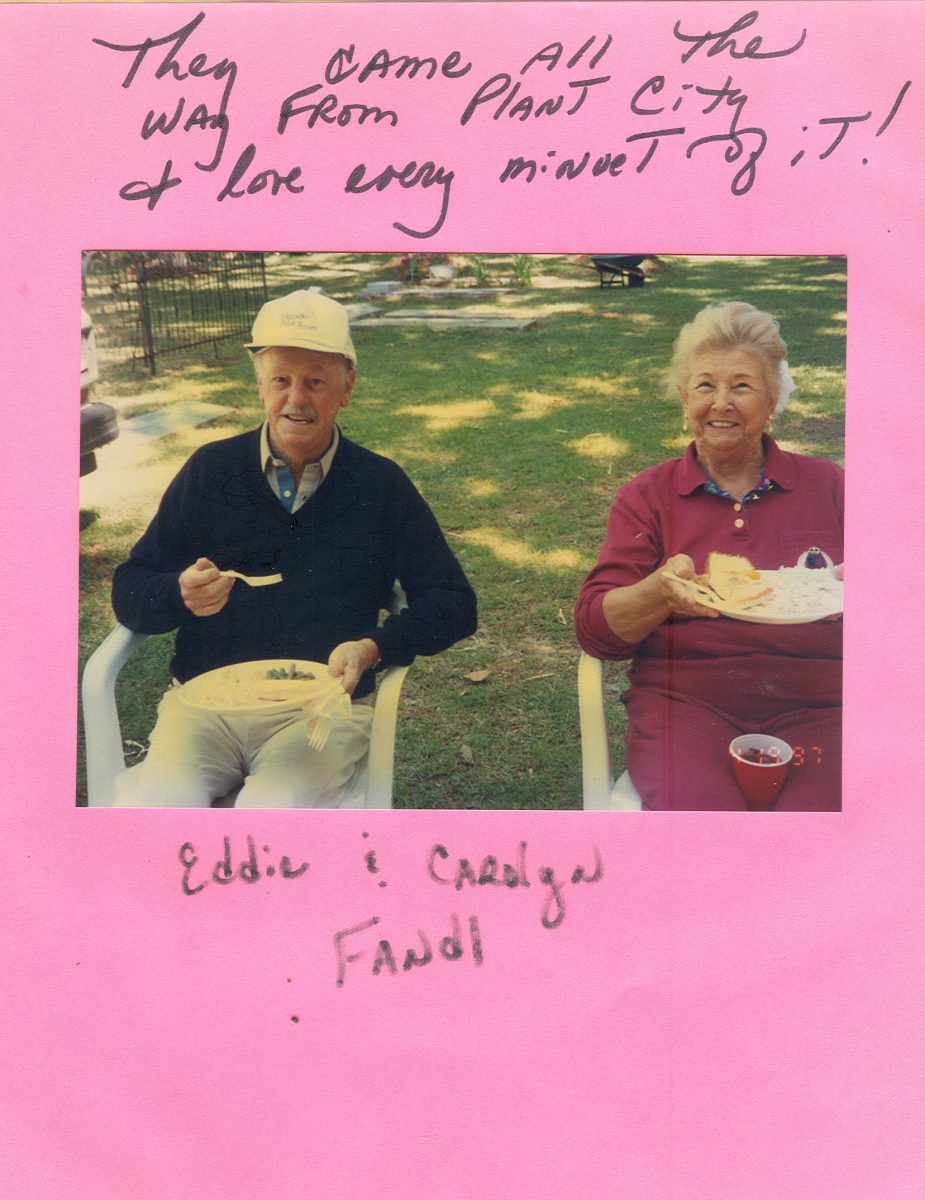 They came All The
way From Plant City
& love every minuet of it!
4 19 '97
Eddie & Carolyn
Fandl